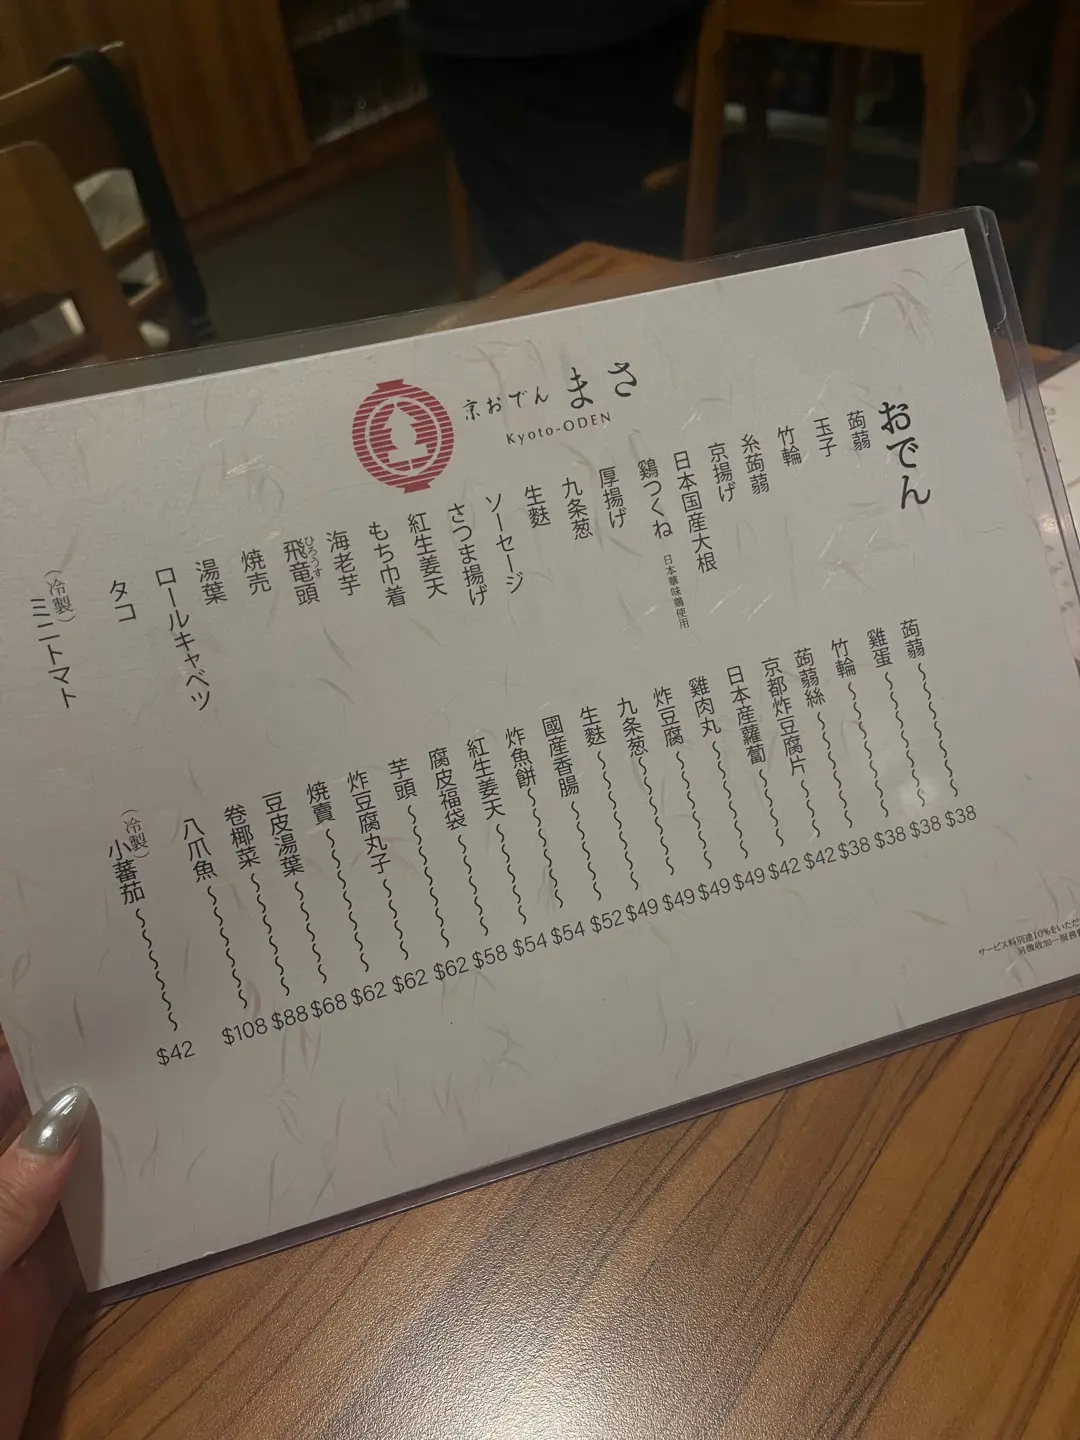 京おでん まさ
Kyoto-ODEN
おでん
蒟蒻
玉子
竹輪
糸蒟蒻
京揚げ
日本国産大根
鶏つくね 日本華味鶏使用
厚揚げ
九条葱
生麩
ソーセージ
さつま揚げ
紅生姜天
もち巾着
海老芋
飛竜頭
ひろうす
焼売
湯葉
ロールキャベツ
タコ
(冷製)ミニトマト
蒟蒻 $38
雞蛋 $38
竹輪 $38
蒟蒻絲 $38
京都炸豆腐片 $42
日本産蘿蔔 $42
雞肉丸 $49
炸豆腐 $49
九条葱 $49
生麩 $49
國産香腸 $52
炸魚餅 $54
紅生姜天 $54
腐皮福袋 $58
芋頭 $62
炸豆腐丸子 $62
焼賣 $62
豆皮湯葉 $68
卷椰菜 $88
八爪魚 $108
(冷製)小蕃茄 $42
サービス料別途10%をいただ
另徵收加一服務